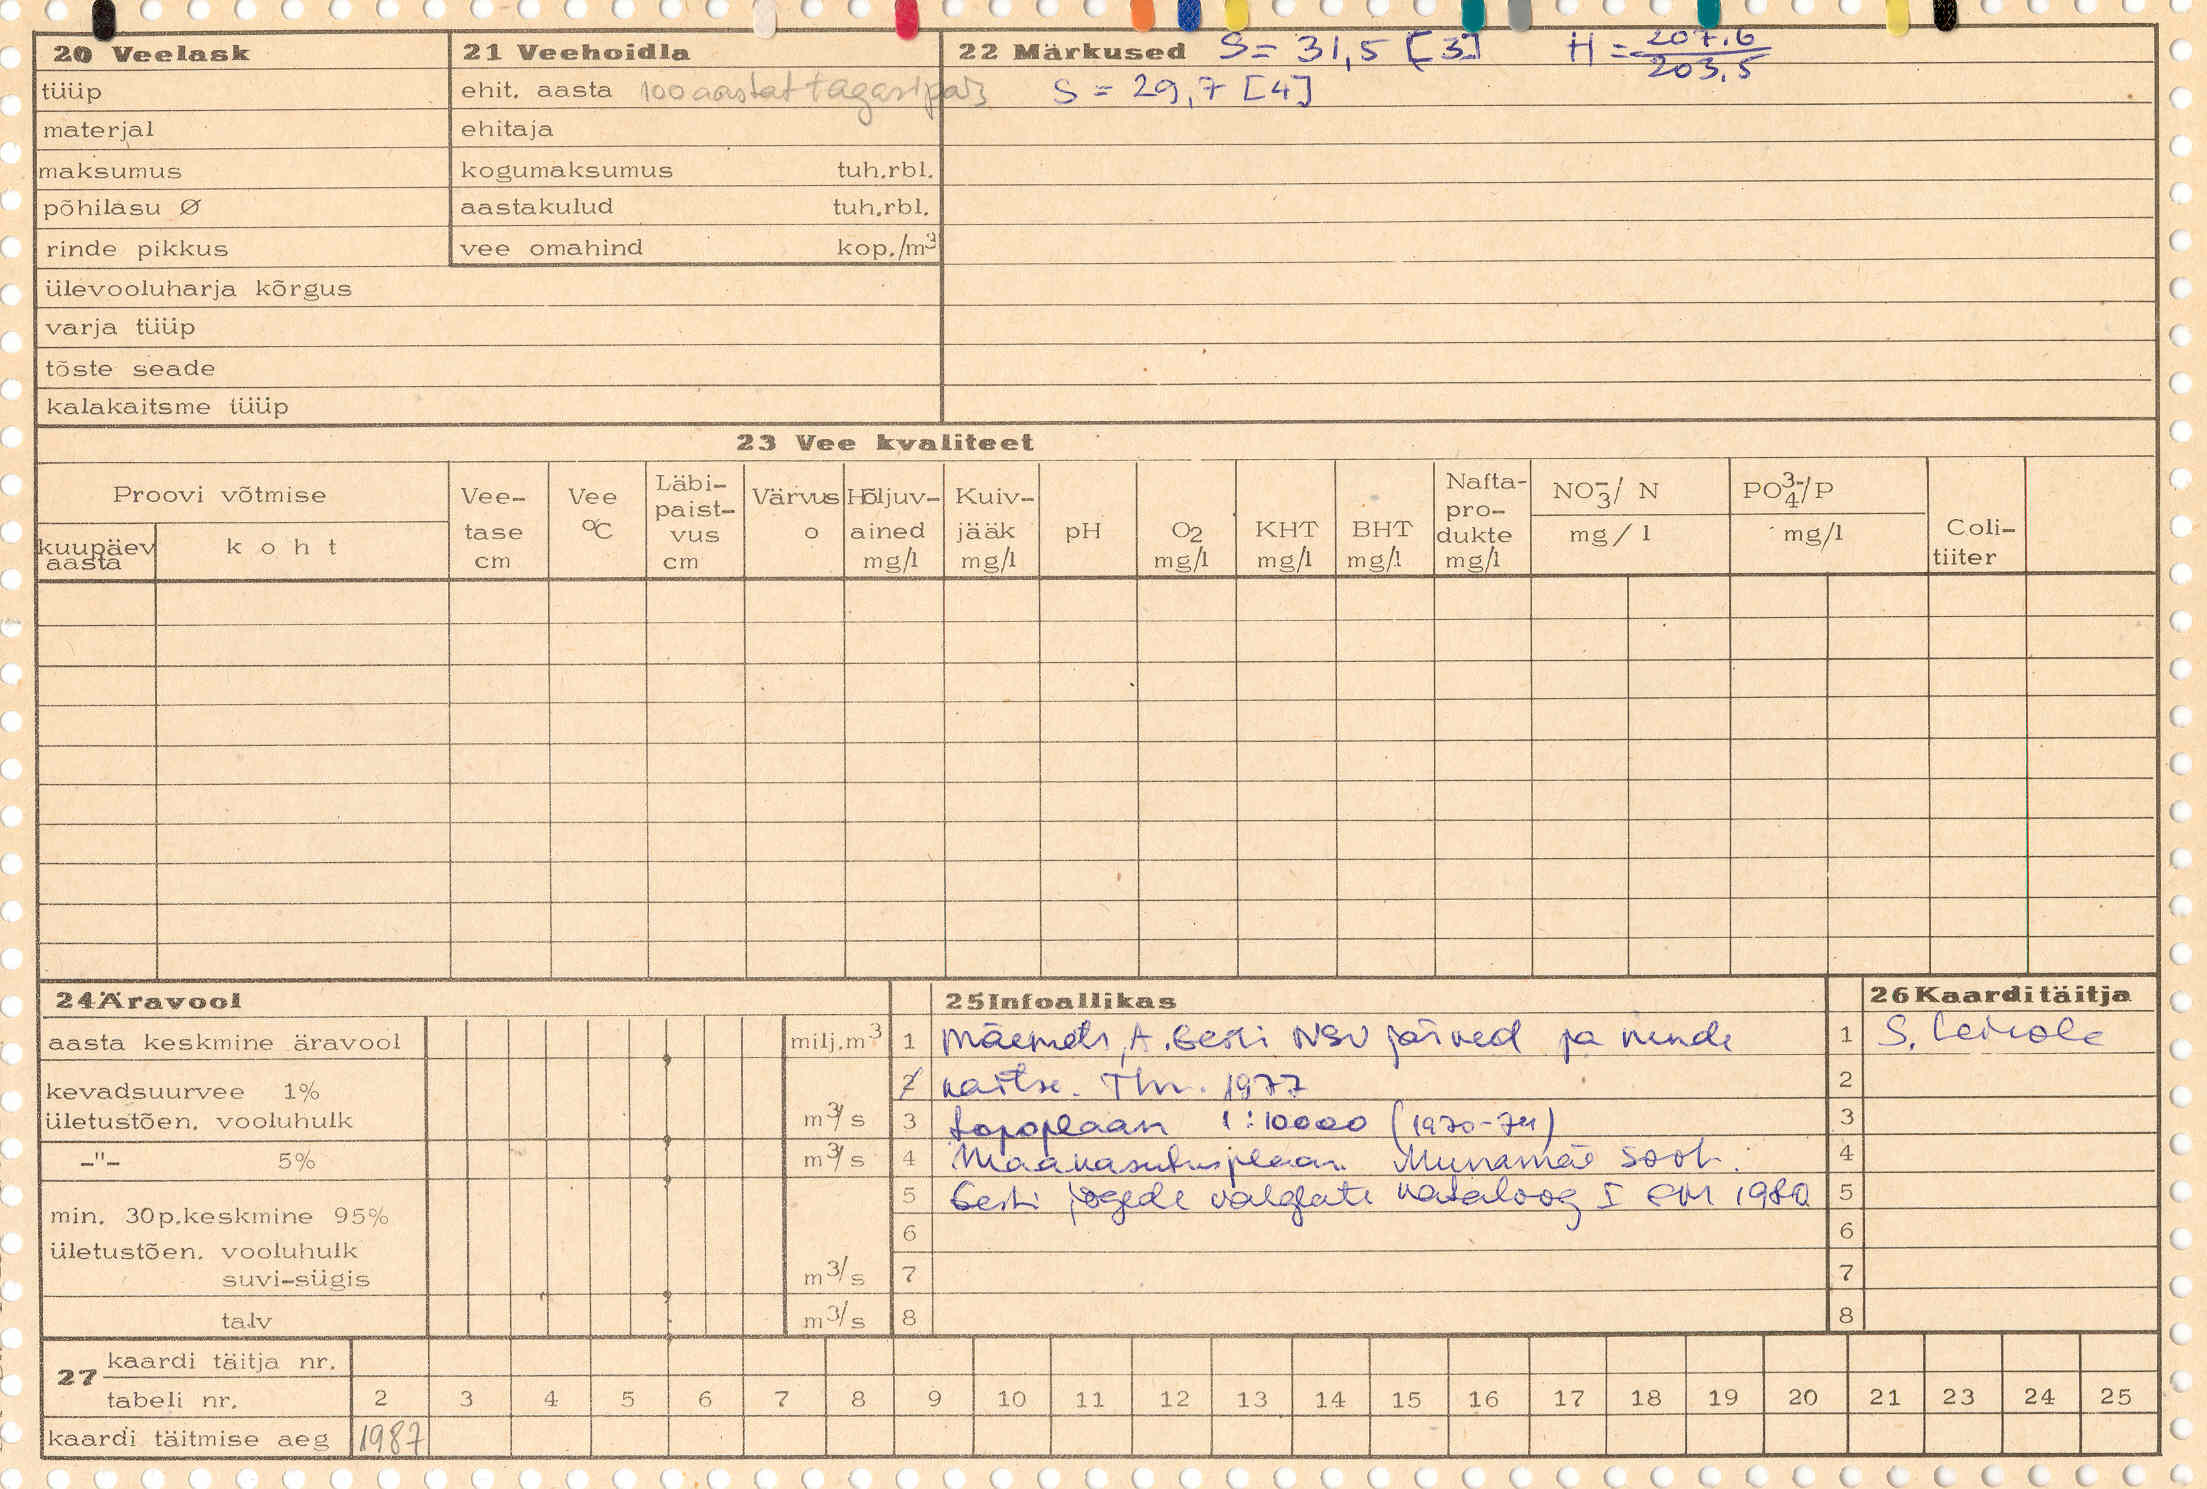 20 Veelask
tüüp
materjal
maksumus
põhilasu Ø
rinde pikkus
ülevooluharja kõrgus
varja tüüp
tõste seade
kalakaitsme tüüp
21 Veehoidla
ehit. aasta 100 aastat tagasi
ehitaja
kogumaksumus tuh.rbl.
aastakulud tuh.rbl.
vee omahind kop./m³
22 Märkused S = 31,5 [3] H = 207.6 / 203.5
S = 29,7 [4]
23 Vee kvaliteet
Proovi võtmise
kuupäev aasta
koht
Vee-tase cm
Vee °C
Läbi-paist-vus cm
Värvus o
Hõljuv-ained mg/l
Kuiv-jääk mg/l
pH
O2 mg/l
KHT mg/l
BHT mg/l
Nafta-pro-dukte mg/l
NO3-/ N mg/l
PO4 3-/P mg/l
Coli-tiiter
24 Äravool
aasta keskmine äravool milj.m³
kevadsuurvee 1%
ületustõen. vooluhulk m³/s
-"- 5% m³/s
min. 30p.keskmine 95%
ületustõen. vooluhulk
suvi-sügis m³/s
talv m³/s
25 Infoallikas
1 Mäemets, A. Eesti NSV järved ja nende
2 kaitse. Tln. 1977
3 Topoplaan 1:10000 (1970-74)
4 Maakasutusplaan Munamäe sooh.
5 Eesti jõgede valglate kataloog I 1980
6
7
8
26 Kaarditäitja
1 S.
2
3
4
5
6
7
8
27 kaardi täitja nr.
tabeli nr. 2 3 4 5 6 7 8 9 10 11 12 13 14 15 16 17 18 19 20 21 23 24 25
kaardi täitmise aeg 1987